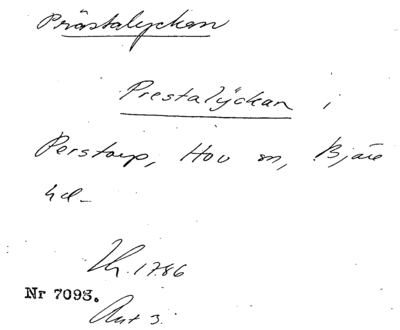 Prästalyckan
Prestalÿckan i
Perstorp, Hov sn, Bjäre
hd
Lh. 1786
Nr 7093.
Akt 3.